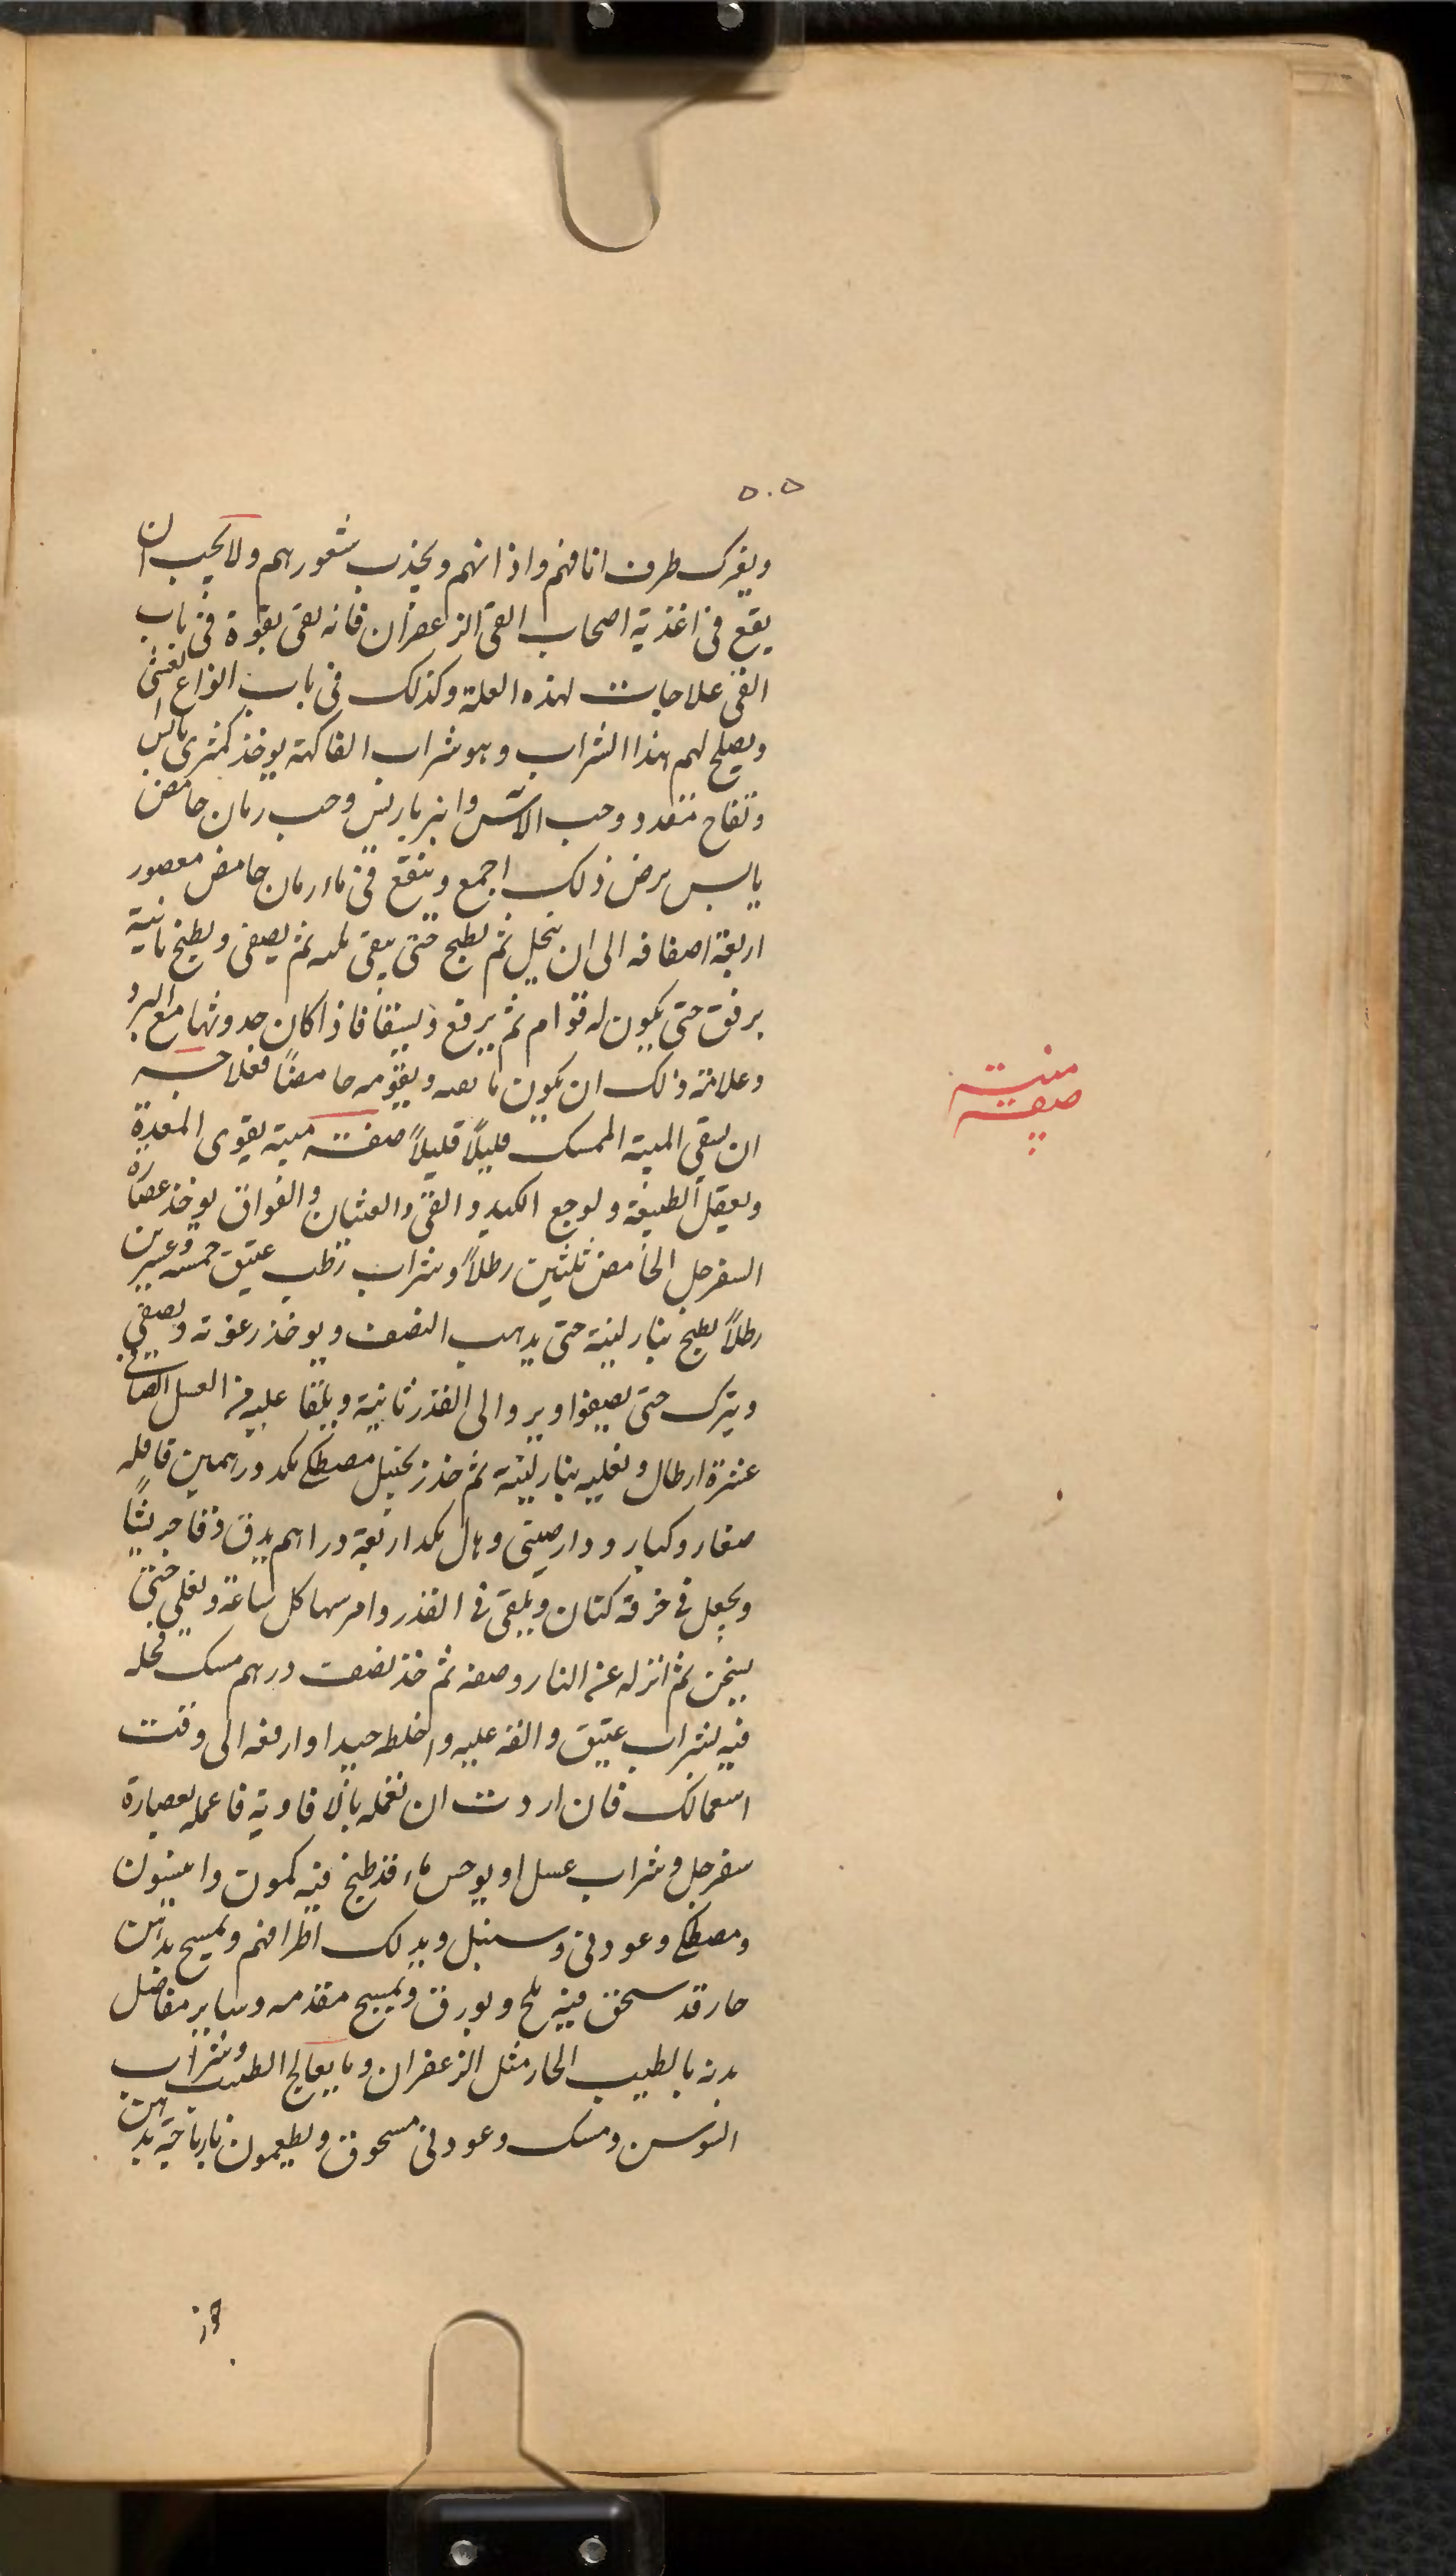 ٥٠٥
ويفرك طرف انافهم واذانهم ويجذب شعورهم ولا يجب ان
يقع فى اغذية اصحاب القى الزعفران فانه يقى بقوة فى باب
القى علاجات لهذه العلة وكذلك فى باب انواع الغشى
ويصلح لهم هذا الشراب وهو شراب الفاكهة يوخذ كمثرى يابس
وتفاح مقدد وحب الآس وانبرباريس وحب رمان حامض
يابس يرض ذلك اجمع وينقع فى ماء رمان حامض معصور
اربعة اضعافه الى ان ينحل ثم يطبخ حتى يبقى ثلثه ثم يصفى ويطبخ ثانية
برفق حتى يكون له قوام ثم يرفع ويسقا فاذا كان حدوثها مع البرد
وعلامة ذلك ان يكون ما يصبه ويقومه حامضًا فعلاجه
ان يسقى الميبة الممسك قليلًا قليلًا صفت ميبة يقوى المعدة
ويعقل الطبيعة ولوجع الكبد والقى والغثيان والفواق يوخذ عصارة
السفرجل الحامض ثلثين رطلًا وشراب رطب عتيق خمسه وعشرين
رطلًا يطبخ بنار لينة حتى يذهب النصف ويوخذ رغوته ويصفى
ويترك حتى يصفوا ويرد الى القدر ثانية ويلقا عليه من العسل الصافى
عشرة ارطال ويغليه بنار لينة ثم خذ زنجبيل مصطكى بكد درهمين قاقله
صغار وكبار ودارصينى وهال بكد اربعة دراهم يدق دقا جريشًا
ويجعل فى خرقة كتان ويلقى فى القدر وامرسها كل ساعة ويغلى حتى
يثخن ثم انزله عن النار وصفه ثم خذ نصف درهم مسك فحله
فيه بشراب عتيق والقه عليه واخلطه جيدا وارفعه الى وقت
استعمالك فان اردت ان تعمله بالافاوية فاعمله بعصارة
سفرجل وشراب عسل او يوخذ ماء قد طبخ فيه كمون وانيسون
ومصطكى وعود نى وسنبل ويدلك اطرافهم ويمسح بدهن
حار قد سحق فيه ملح وبورق ويمسح مقدمه وساير مفاصل
بدنه بالطيب الحار مثل الزعفران وما يعالج الطيب وشراب
السوسن ومسك وعود نى مسحوق ويطعمون نارباجة بدهن
ميبة
صفت